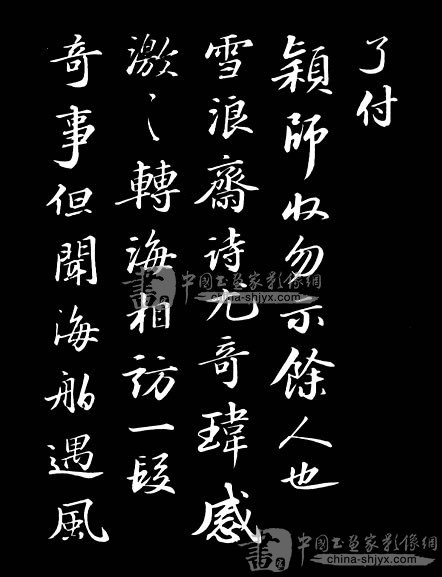 了付
穎師收勿示餘人也
雪浪齋诗尤奇瑋感
激〻轉海相訪一段
奇事但聞海舶遇風
中国书画家影像网
china-shjyx.com
中国书画家影像网
china-shjyx.com